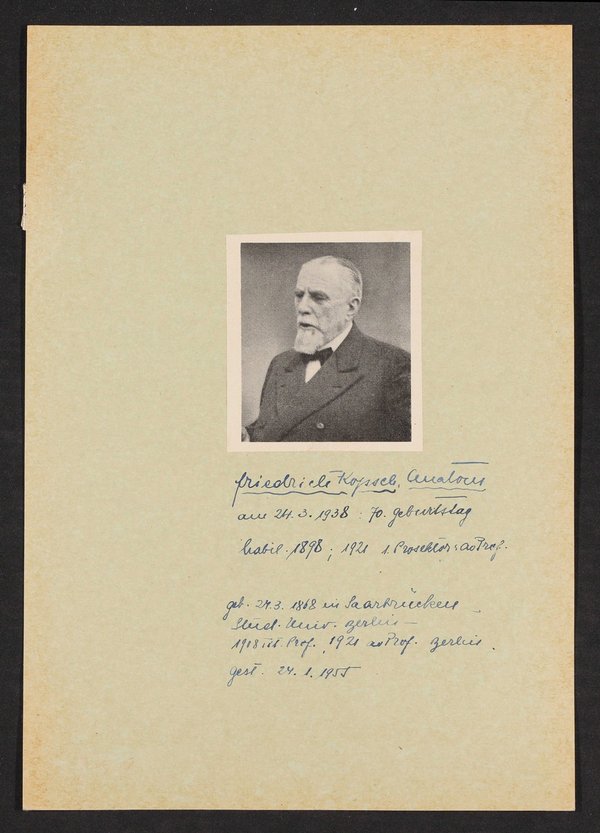 Friedrich Kopsch, Anatom
am 24.3.1938: 70. Geburtstag
habil. 1898; 1921 1. Prosektor: ao Prof.
geb. 24.3. 1868 in Saarbrücken
Stud. Univ. Berlin –
1908 tit. Prof. 1921 ao Prof. Berlin.
gest. 24. 1. 1955